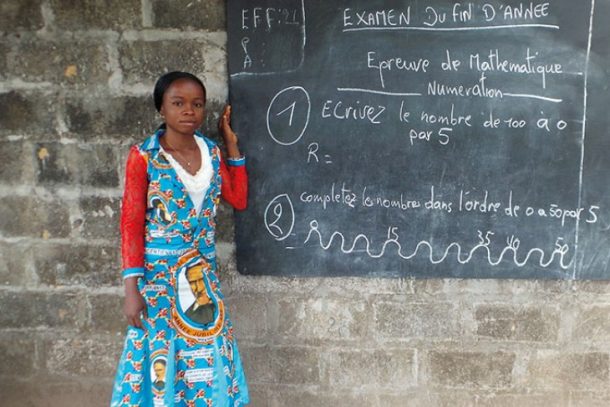 EFF: 21
P :
A :
EXAMEN DU FIN D'ANNEE
Epreuve de Mathématique
Numération
1 Ecrivez le nombre de 100 à 0
par 5
R =
2 completez les nombres dans l'ordre de 0 à 50 par 5
0 15 35 40 50
ANNEE JUBILAIRE